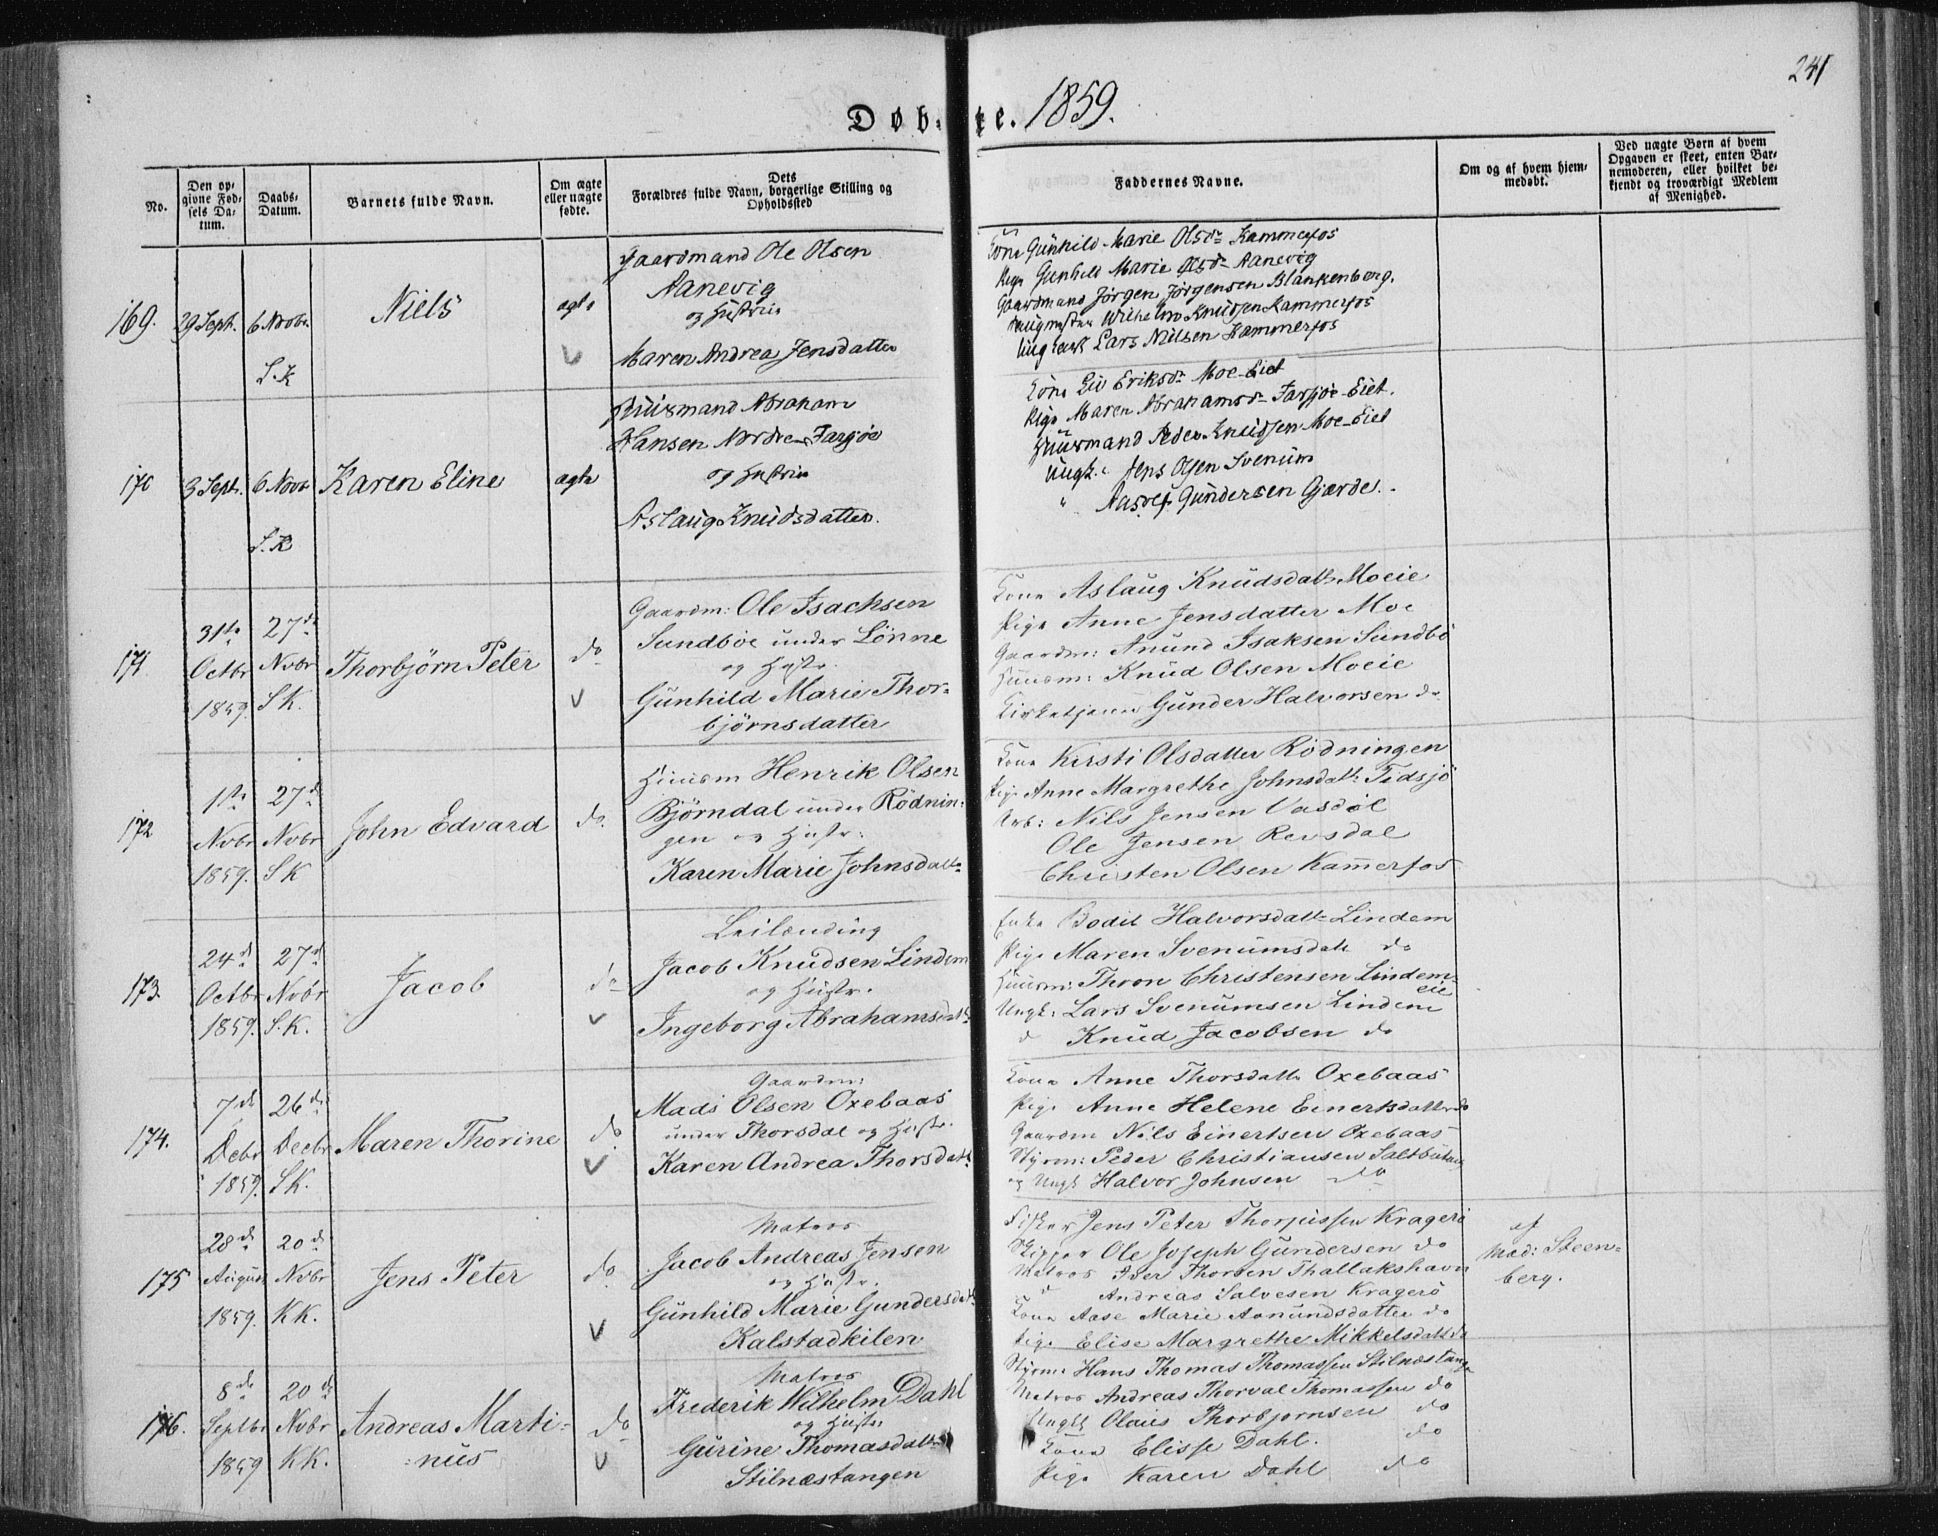 241
Døbte. 1859.
No.
Den opgivne Fødsels Datum.
Daabs-Datum.
Barnets fulde Navn.
Om ægte eller uægte fødte.
Dets Forældres fulde Navn, borgerlige Stilling og Opholdssted
Faddernes Navne.
Om og af hvem hjemmedøbt.
Ved uægte Børn af hvem Opgaven er skeet, enten Barnemoderen, eller hvilket bekjendt og troværdigt Medlem af Menighed.
169.
29 Sept.
6 Novbr.
S. K
Niels
ægte
Gaardmand Ole Olsen
Aanevig
og Hustrue
Maren Andrea Jensdatter
Kone Gunhild Marie Olsdr Kammerfos
Pige Gunhild Marie Olsdr Aanevig
Gaardmand Jørgen Jørgensen Blankenberg.
Wilhelm Knudsen Kammerfos
Ungkarl Lars Nilsen Kammerfos
170
3 Sept.
6 Novbr
S. K
Karen Eline
ægte
Huusmand Abraham
Hansen Nordre Farsjøe
og Hustrue
Aslaug Knudsdatter.
Kone Liv Eriksdr Moe-Eiet
Pige Maren Abrahamsdr Farsjøe-Eiet.
Huusmand Peder Knudsen Moe-Eiet
Ungk. Jens Olsen Svenum
" Gundersen Gjerde.
171.
31te Octbr 1859.
27de Nvbr SK.
Thorbjørn Peter
do
Gaardm: Ole Isachsen
Sundbøe under Lønne
og Hustr.
Gunhild Marie Thor-
bjørnsdatter
Kone Aslaug Knudsdattr Moeie
Pige Anne Jensdatter Moe
Gaardm: Anund Isaksen Sundbö
Huusm: Knud Olsen Moeie
Kirketjener Gunder Halvorsen do
172
1ste Nvbr 1859.
27de Nvbr SK
John Edvard
do.
Huusm Henrik Olsen
Bjørndal under Rødnin-
gen og Hustr:
Karen Marie Johnsdattr
Kone Kirsti Olsdatter Rødningen
Pige Anne Margrethe Johnsdattr Tidsjö
Arb: Nils Jensen Vasdöl
Ole Jensen Revsdal
Christen Olsen Kammerfos
173.
24de Octbr 1859.
27de Nvbr S.K.
Jacob
do
Leilænding
Jacob Knudsen Lindem
og Hustr.
Ingeborg Abrahamsdtr
Enke Bodil Halvorsdattr Lindem
Pige Maren Svenumsdatt do
Huusm: Thron Christensen Lindem-
eie
Ungk: Lars Svenumsen Lindem
d Knud Jacobsen do
174.
7de Decbr 1859.
26de Decbr SK.
Maren Thorine
do
Gaardm:
Mads Olsen Oxebaas
under Thorsdal og Hustr.
Karen Andrea Thorsdatt
Kone Anne Thorsdattr Oxebaas
Pige Anne Helene Einertsdatter do
Gaardm Nils Einertsen Oxebaas
Styrm: Peder Christiansen Saltbutangen
og Ungk Halvor Johnsen do
175
28de August 1859.
20de Nvbr KK.
Jens Peter
do
Matros
Jacob Andreas Jensen
og Hustr.
Gunhild Marie Gundersdatt
Kalstadkilen
Fisker Jens Peter Thorjussen Kragerö
Skipper Ole Joseph Gundersen do
Matros Iver Thorsen Thallakshavn
d Andreas Salvesen Kragerö
Kone Aase Marie Aanundsdatter do
Pige Elise Margrethe Mikkelsdatt do
af
Mad: Steen-
berg.
176.
8de Septbr 1859
20de Nvbr KK.
Andreas Marti-
nus
do
Matros
Frederik Wilhelm Dahl
og Hustr
Gurine Thomasdatt
Stilnæstangen
Styrm: Hans Thomas Thomassen Stilnæstangen
Matros Andreas Thorval Thomassen do
Ungk Olaus Thorbjørnsen do
Kone Elisse Dahl. do
Pige Karen Dahl do